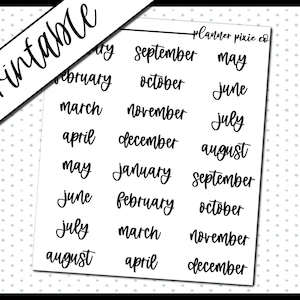 printable
planner pixie co
september may
february october june
march november july
april december august
may january september
june february october
july march november
august april december